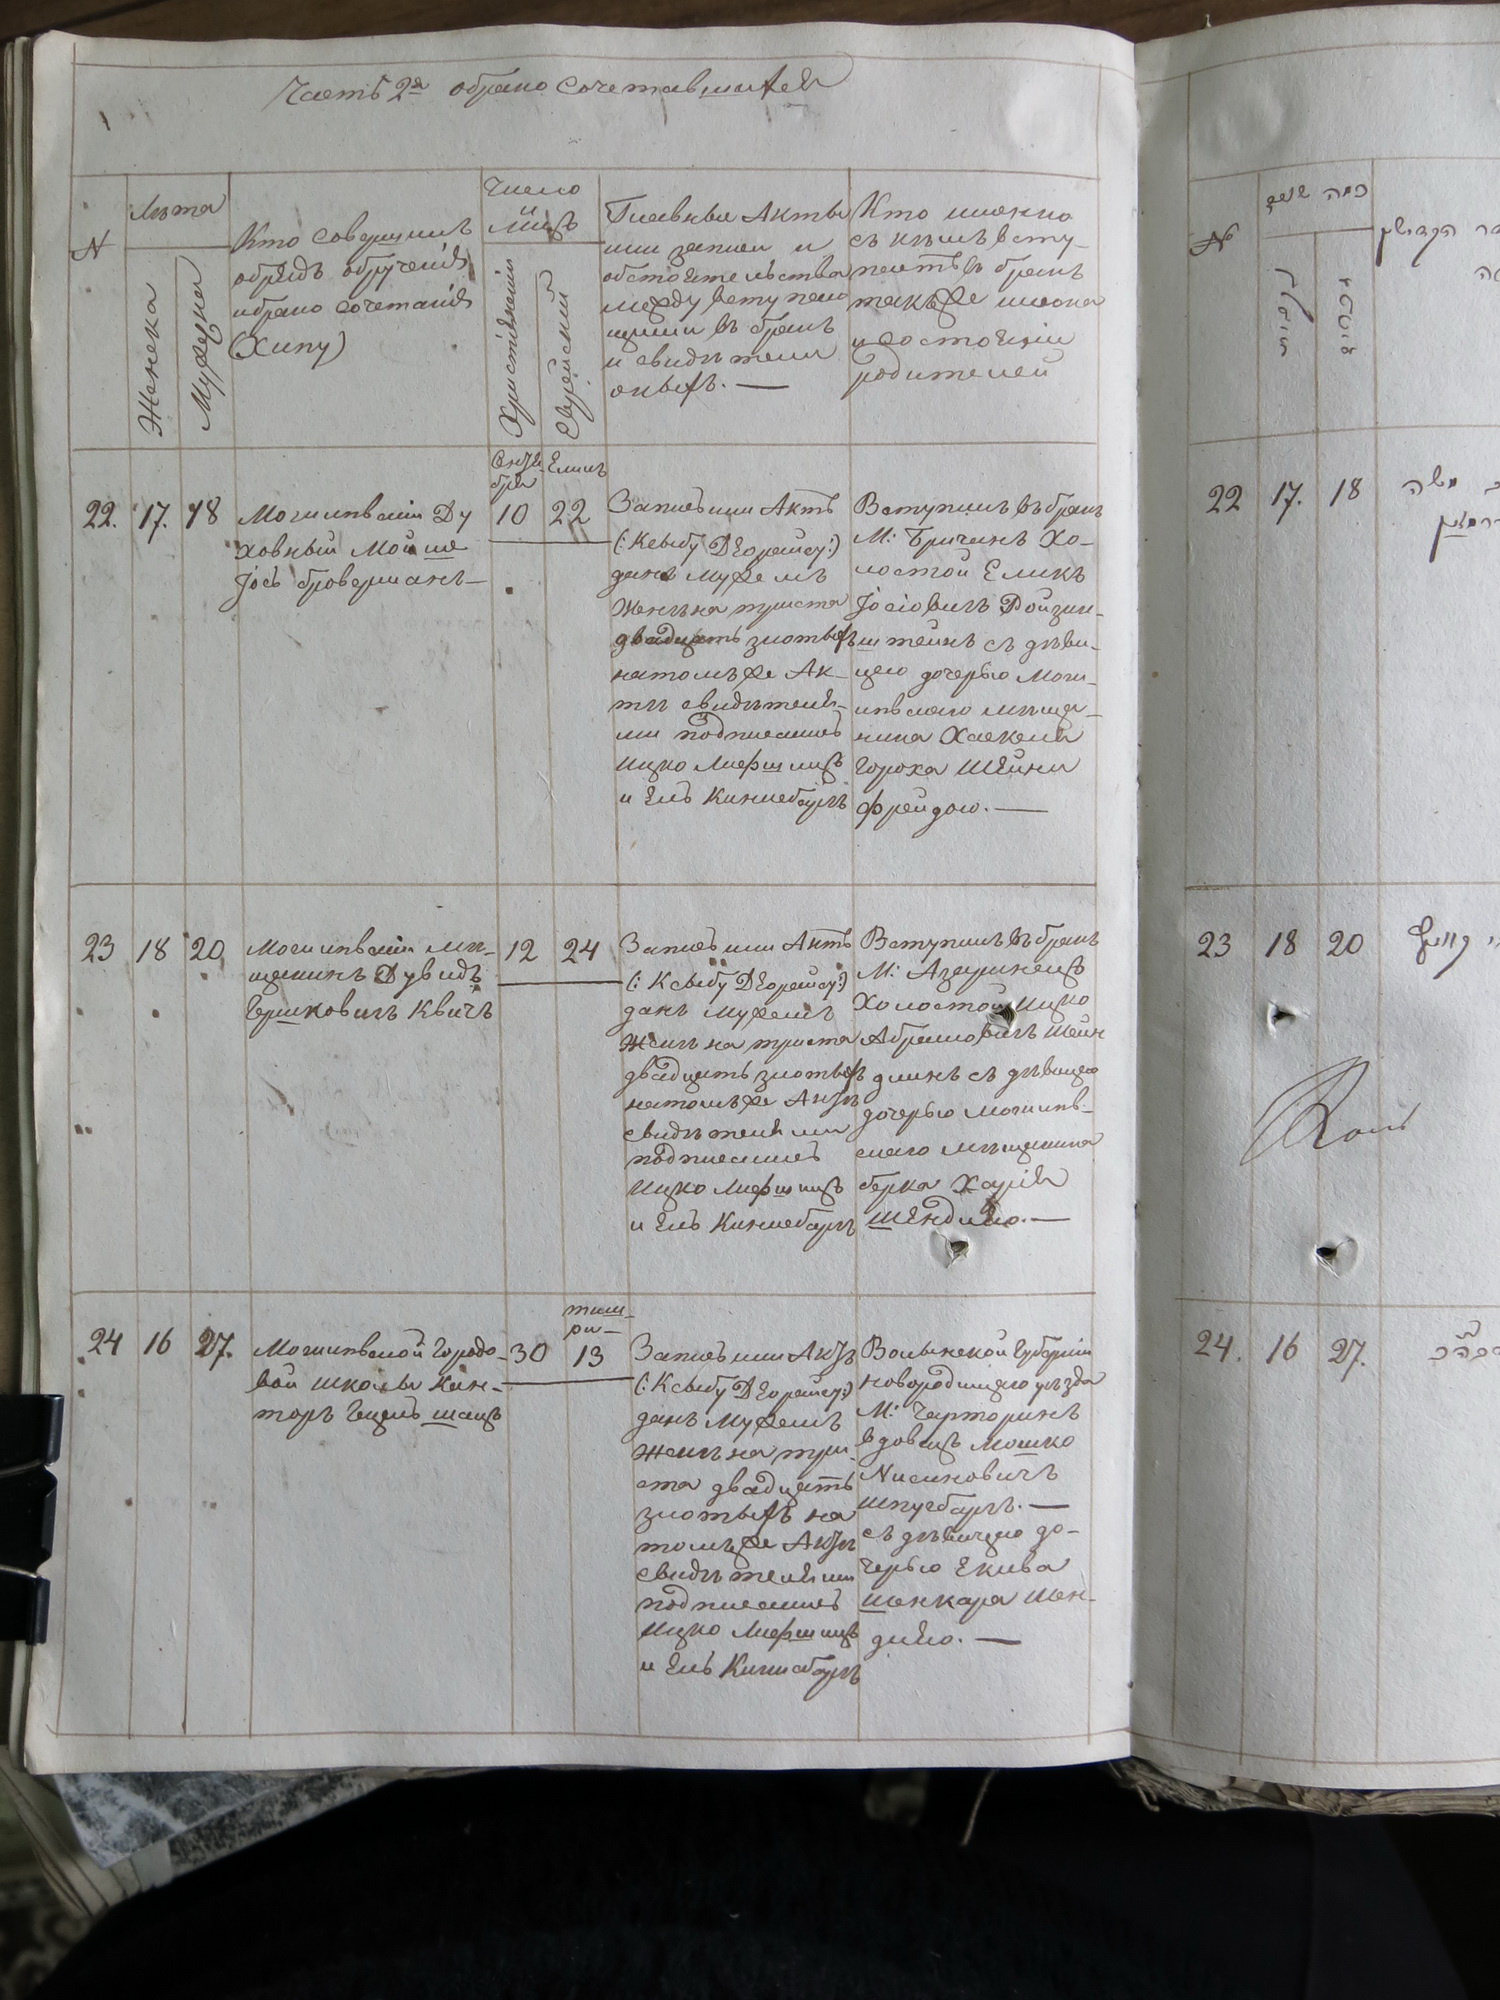 Часть 2я о брако сочетавшихся
N
Лѣта
Женска
Мужска
Кто совершилъ
обрядъ обрученія
и брако сочетанія
(Хипу)
Число
и мѣсяцъ
Христіянскій
Еврейский
Главные Акты
или записи и
обстоятельства
между вступаю
щими въ бракъ
и свидѣтели
оныхъ. —
Кто именно
съ кѣмъ всту-
паетъ въ бракъ
такъже имена
и состоянія
родителей
22. 17. 18
Могилевскій Ду
ховный Мойше
Іось броверманъ —
Октя
бря
10
Елилъ
22
Запись или Актъ
(: Ксыбу Деорайсу :)
данъ мужемъ
женѣ на триста
двадцать злотыхъ
на томъ же Ак-
тѣ свидѣтеля-
ми подписались
Ицко Лифшицъ
и Ель Кинисбергъ
Вступилъ въ бракъ
М: Бричанъ Хо-
лостой Еликъ
Іосіовичъ Ройзин-
штейнъ съ дѣви-
цею дочерью Моги-
левскаго мѣща-
нина Хаскеля
Гороха Шейни
Фрейдою. —
23 18 20
Могилевскій мѣ-
щанинъ Дувидъ
Гершковичъ Квичъ
12 24
Запись или Актъ
(: Ксыбу Деорайсу :)
данъ мужемъ
женѣ на триста
двадцать злотыхъ
на томъ же Актѣ
свидѣтелями
подписались
Ицко Лифшицъ
и Ель Кинисбергъ
Вступилъ въ бракъ
М:
Холостой Ицко
Абрамовичъ
съ дѣвицею
дочерью Могилев-
скаго мѣщанина
берка
Шендлею. —
24 16 27.
Могилевской Городо-
вой школы Кан-
торъ Гецель шацъ
30
тиш-
ри —
13
Запись или Актъ
(: Ксыбу Деорайсу :)
данъ мужемъ
женѣ на три-
ста двадцать
злотыхъ на
томъ же Актѣ
свидѣтелями
подписались
Ицко Лифшицъ
и Ель Кинисбергъ
Волынской Губерніи
новородицкаго уѣзда
М: Черторинъ
вдовецъ Мошко
Нисиновичъ
—
съ дѣвицею до-
черью Екива
Шенкара Шен-
длею. —
N
כמה שנים
22 17. 18
משה
23 18 20
24. 16 27.